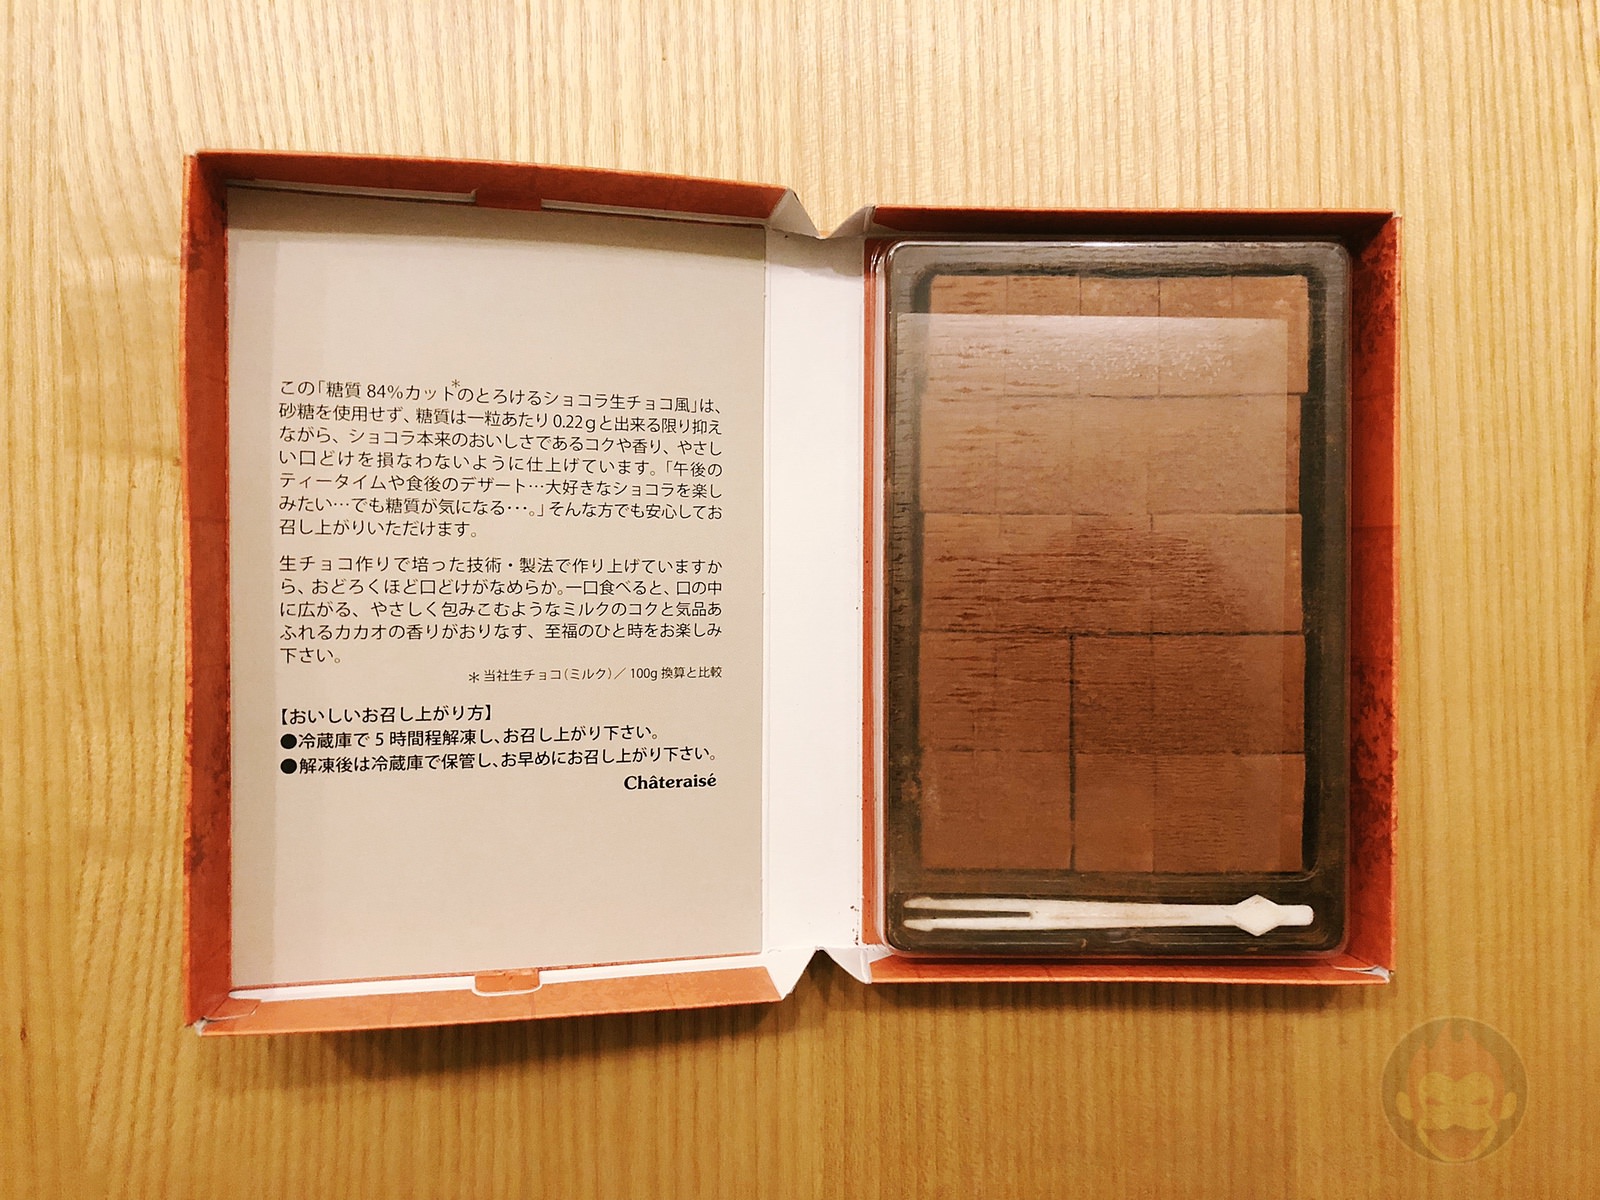 この「糖質 84%カット*のとろけるショコラ生チョコ風」は、
砂糖を使用せず、糖質は一粒あたり 0.22gと出来る限り抑え
ながら、ショコラ本来のおいしさであるコクや香り、やさし
い口どけを損なわないように仕上げています。「午後の
ティータイムや食後のデザート…大好きなショコラを楽し
みたい…でも糖質が気になる・・・。」そんな方でも安心してお
召し上がりいただけます。
生チョコ作りで培った技術・製法で作り上げていますか
ら、おどろくほど口どけがなめらか。一口食べると、口の中
に広がる、やさしく包みこむようなミルクのコクと気品あ
ふれるカカオの香りがおりなす、至福のひと時をお楽しみ
下さい。
＊当社生チョコ（ミルク）／100g 換算と比較
【おいしいお召し上がり方】
●冷蔵庫で 5 時間程解凍し、お召し上がり下さい。
●解凍後は冷蔵庫で保管し、お早めにお召し上がり下さい。
Châteraisé